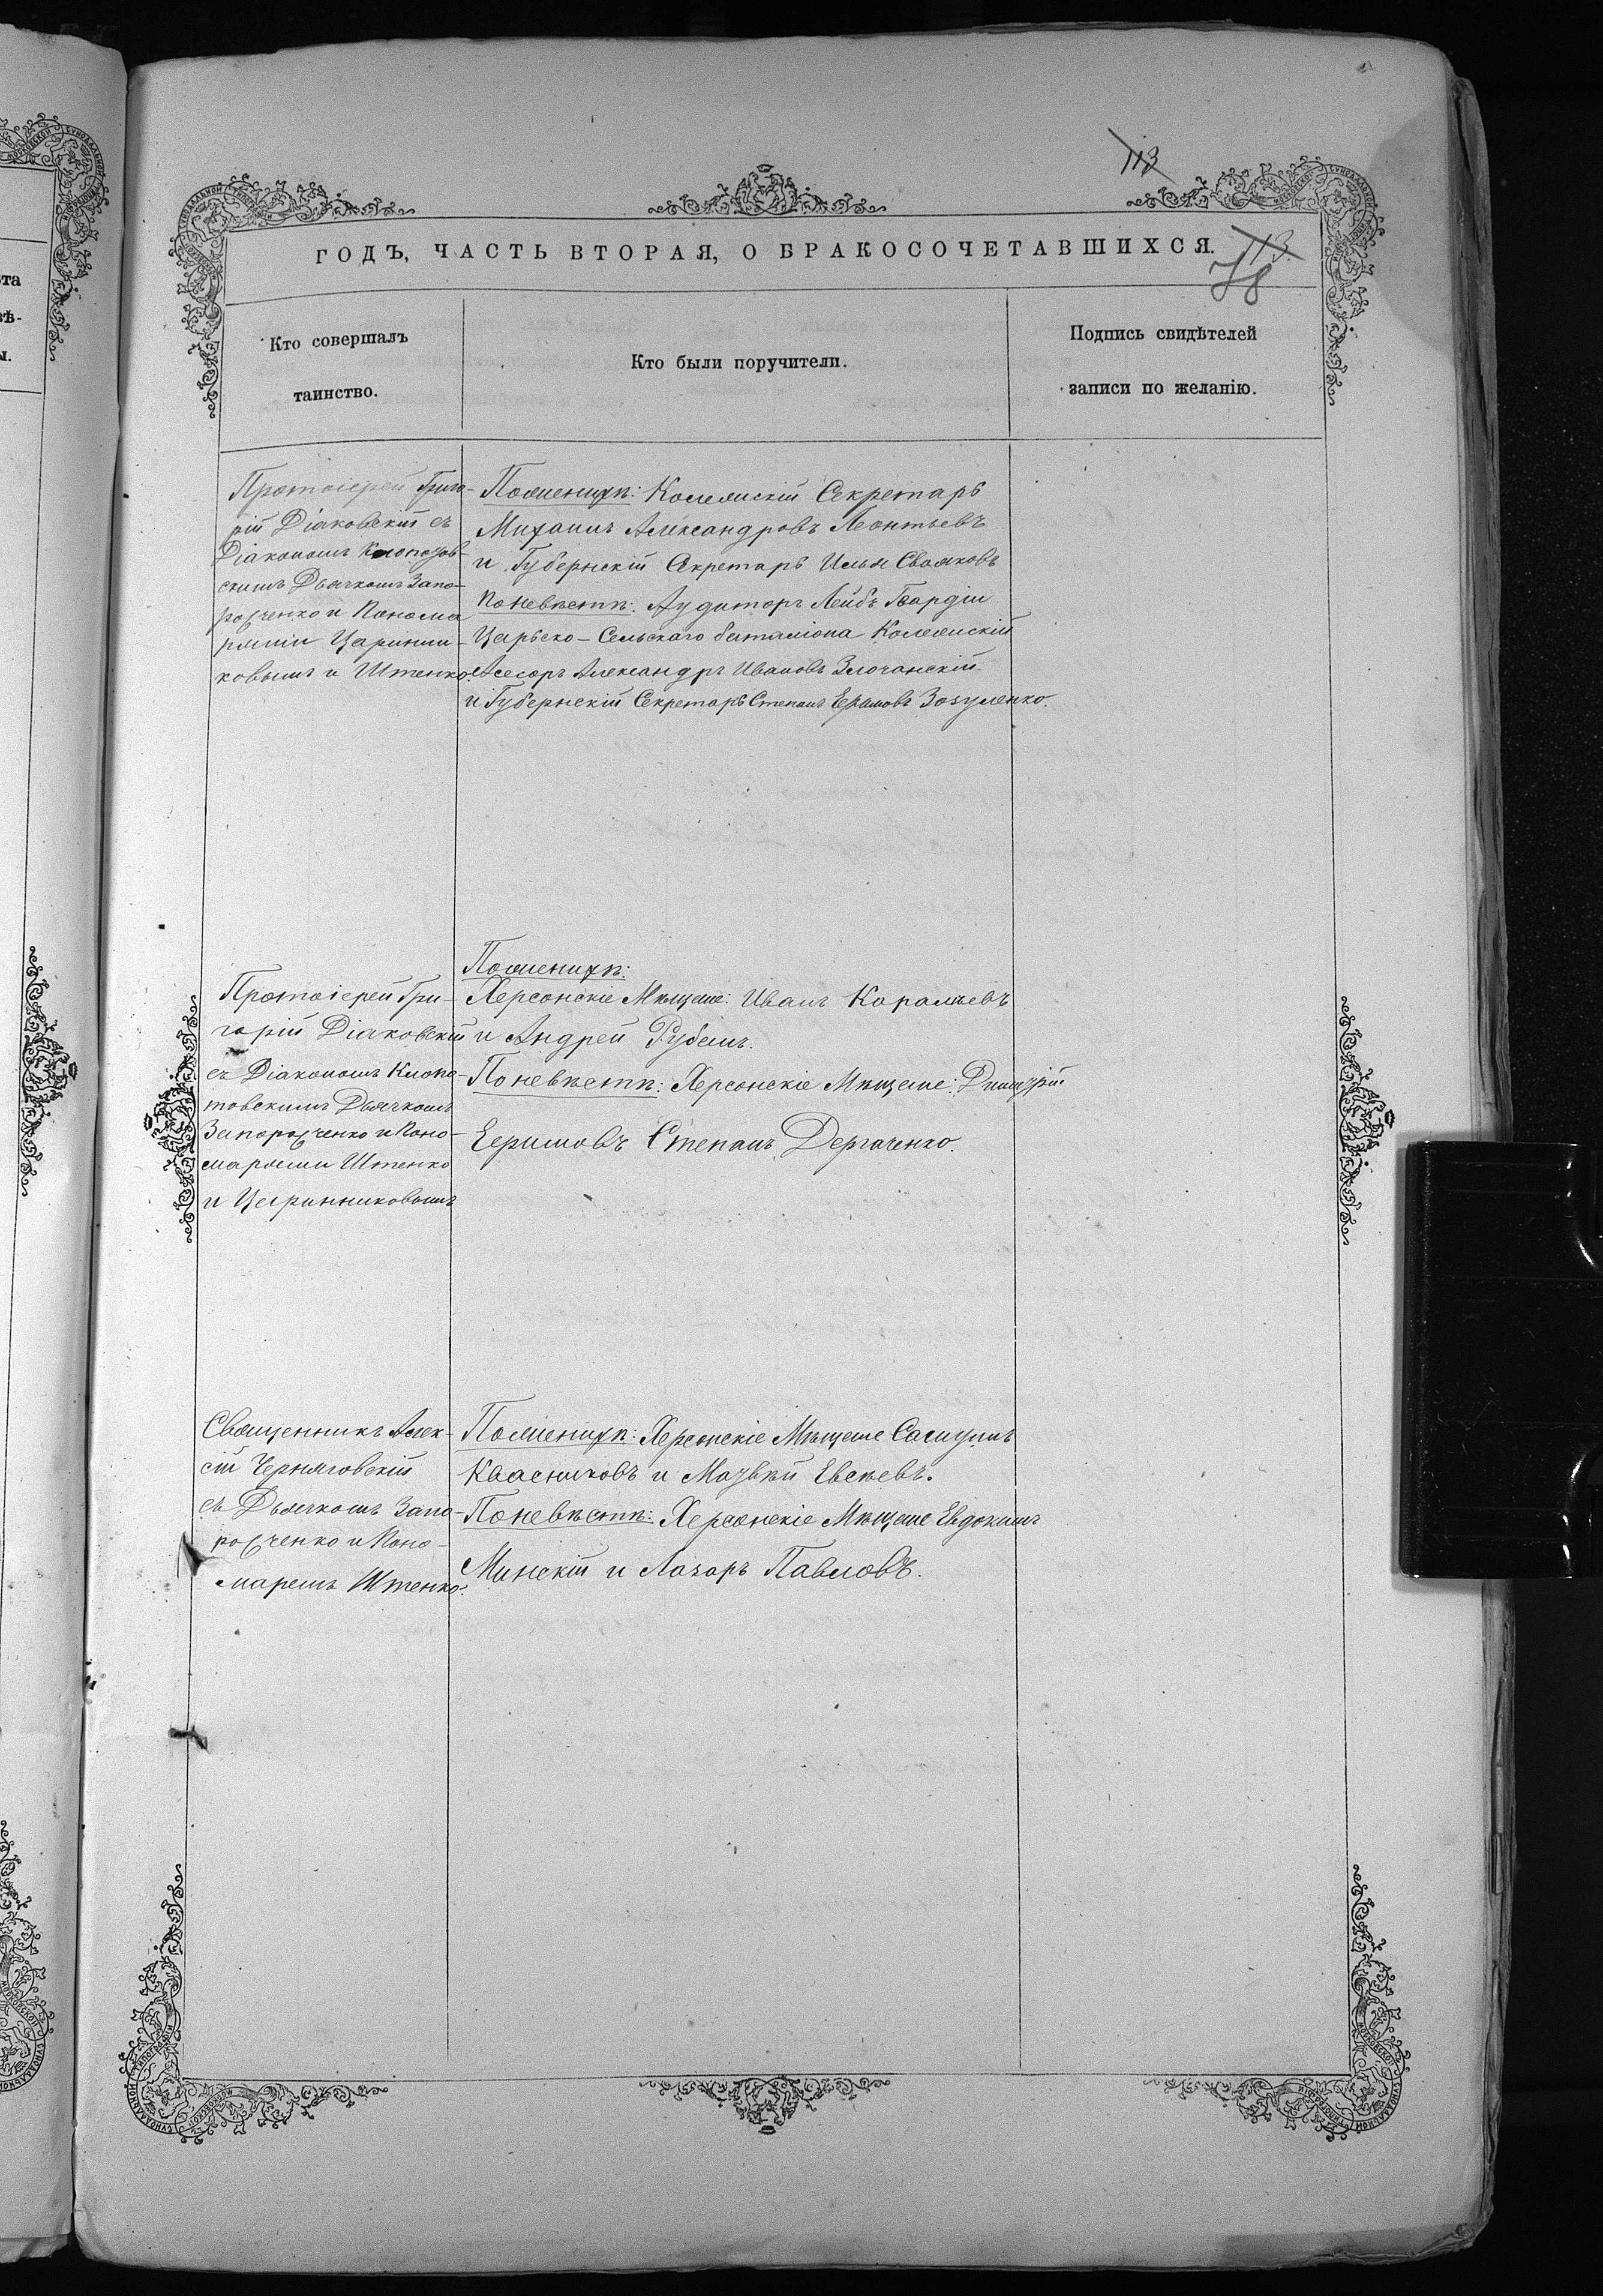 113
ГОДЪ, ЧАСТЬ ВТОРАЯ, О БРАКОСОЧЕТАВШИХСЯ.
113.
78
Кто совершалъ
таинство.
Кто были поручители.
Подпись свидѣтелей
записи по желанію.
Протоіерей Григо-
рій Діаковскій съ
Діакономъ Клопотов-
скимъ Дьячкомъ Запо-
рожченко и Понома
рями Царинни-
ковымъ и Штенко.
Поженихѣ: Колежскій Секретарь
Михаилъ Александровъ Леонтьевъ
и Губернскій Секретарь Илья Свояковъ
Поневѣстѣ: Аудиторъ Лейбъ Гвардіи
Царьско-Сельскаго баталіона Колежскій
Асесоръ Александръ Ивановъ Злочанскій
и Губернскій Секретарь Степанъ Ефимовъ Зозуленко.
Протоіерей Гри-
горій Діаковскій
съ Діакономъ Клопо-
товскимъ Дьячкомъ
Запорожченко и Поно-
марями Штенко
и Царинниковымъ
Поженихѣ:
Херсонскіе Мѣщане: Иванъ Каралчевъ
и Андрей Рубанъ.
Поневѣстѣ: Херсонскіе Мѣщане: Димитрій
Степанъ Дергаченко.
Священникъ Алек-
сій Черняговскій
съ Дьячкомъ Запо-
рожченко и Поно-
маремъ Штенко.
Поженихѣ: Херсонскіе Мѣщане Самуилъ
Квасниковъ и Матвѣй Евсѣевъ.
Поневѣстѣ: Херсонскіе Мѣщане Евдокимъ
Минскій и Лазарь Павловъ.